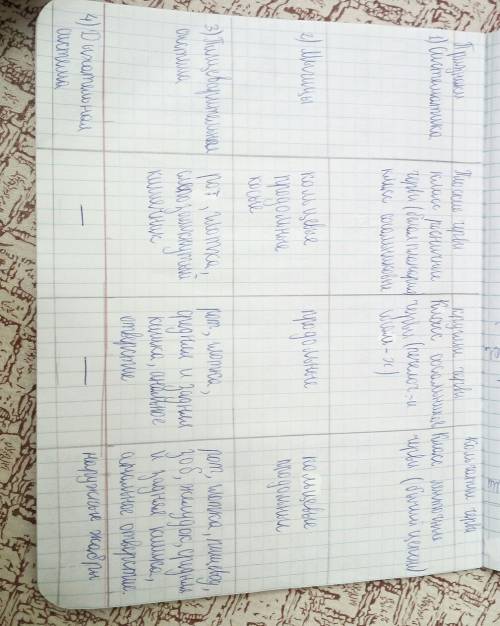 Признаки
Плоские черви
Круглые черви
Кольчатые черви
1) Систематика
класс ресничные
черви (белая планария)
класс сосальщики
Класс собственно
черви
Класс
черви
2) Мышцы
кольцевые
продольные
косые
продольные
кольцевые
продольные
3) Пищеварительная
система
рот, глотка,
слепозамкнутый
кишечник
рот, глотка,
средняя и задняя
кишка, анальное
отверстие
рот, глотка, пищевод,
зоб, желудок, средняя
и задняя кишка,
анальное отверстие.
4) Дыхательная
система
—
—
наружные жабры